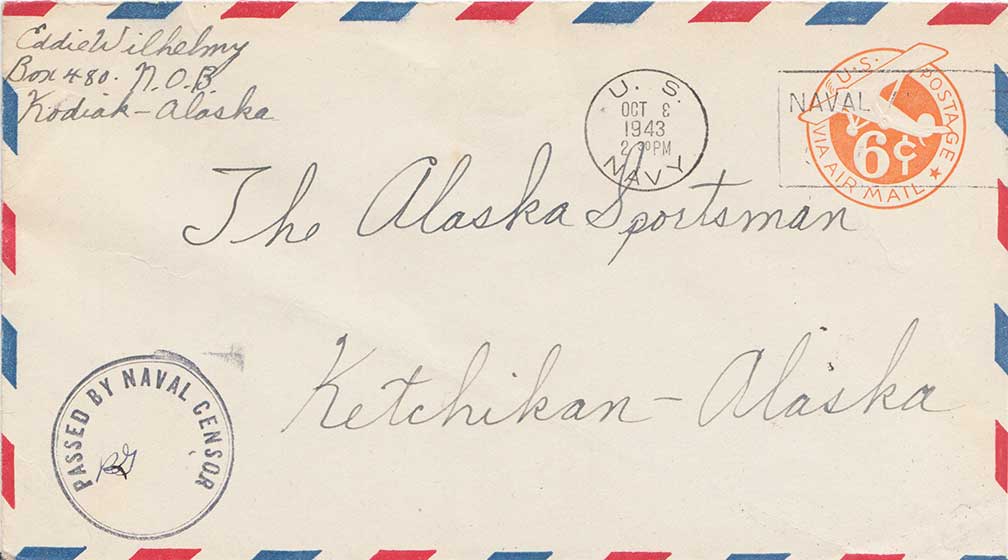 Eddie Wilhelmy
Box 480. N.O.B.
Kodiak - Alaska
U. S.
OCT 8
1943
2 30 PM
NAVY
NAVAL
U.S. POSTAGE
6¢
VIA AIR MAIL
The Alaska Sportsman
Ketchikan - Alaska
PASSED BY NAVAL CENSOR